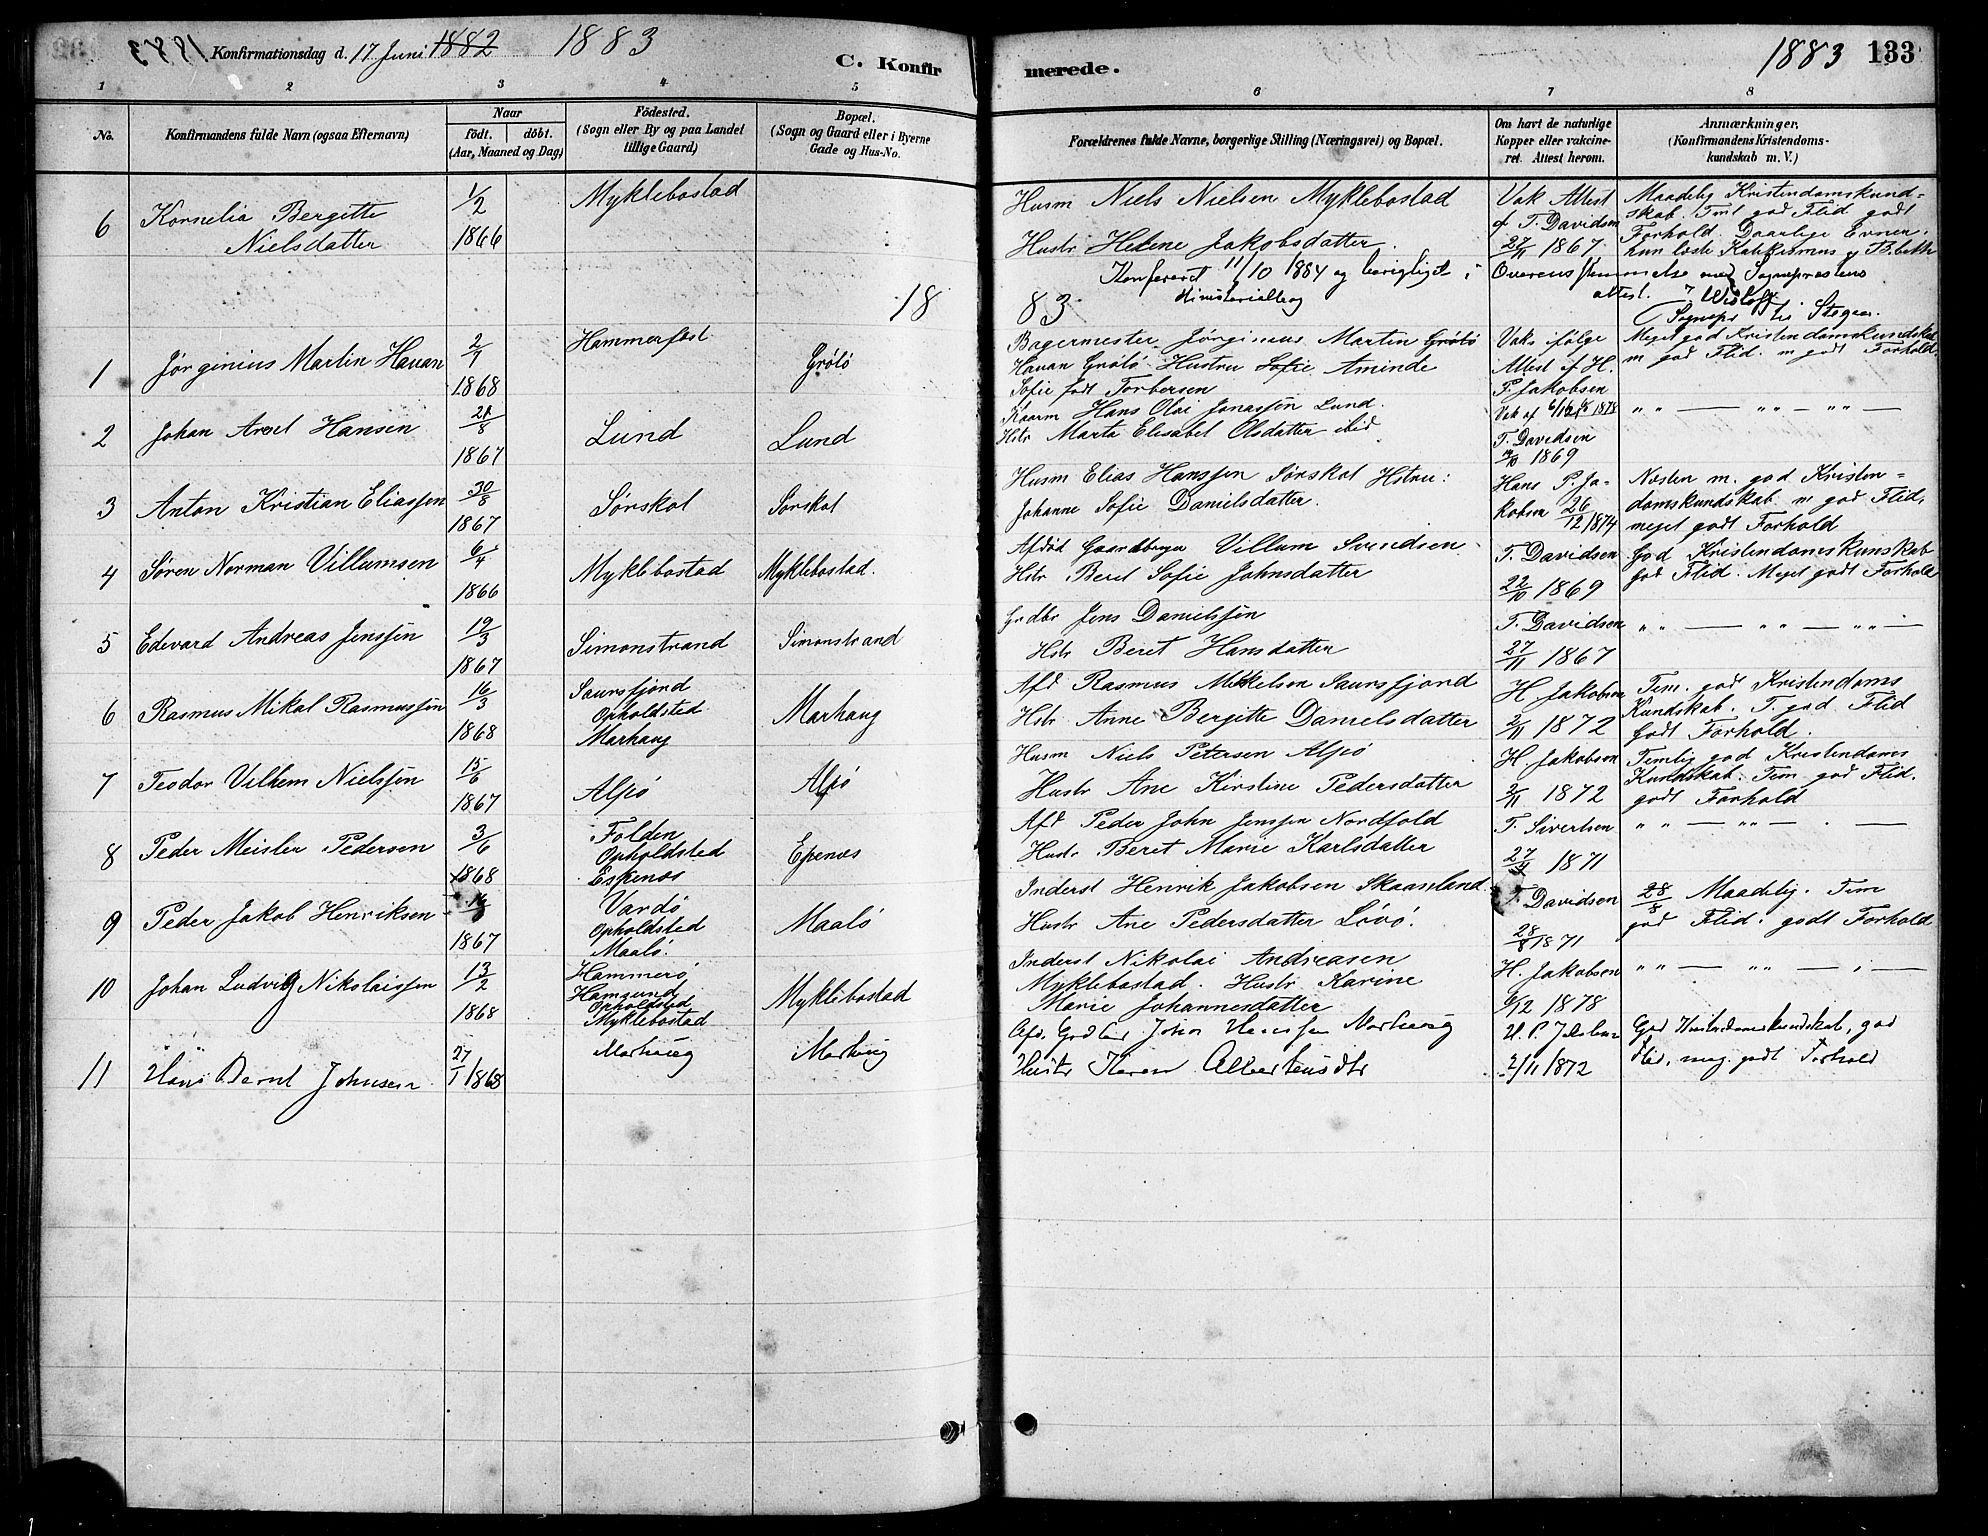 Konfirmationsdag d. 17 Juni 1882 1883
C. Konfir
merede.
1883 133
1 2 3 4 5 6 7 8
No.
Konfirmandens fulde Navn (ogsaa Efternavn)
Naar
født. döbt.
(Aar, Maaned og Dag)
Födested.
(Sogn eller By og paa Landet
tillige Gaard)
Bopæl.
(Sogn og Gaard eller i Byerne
Gade og Hus-No.
Forældrenes fulde Navne, borgerlige Stilling (Næringsvei) og Bopæl.
Om havt de naturlige
Kopper eller vakcine-
ret. Attest herom.
Anmærkninger.
(Konfirmandens Kristendoms-
kundskab m. V.)
6 Kornelia Bergitte
Nielsdatter
1/2
1866
Myklebostad
Husm Niels Nielsen Myklebostad
Hustr Helene Jakobsdatter.
Vak Attest
af T. Davidsen
27/11 1867.
Maadelig Kristendomskund-
skab. Tml god Flid godt
Forhold. Daarlige Evner.
hun læste Katekismus og
Konfereret 11/10 1884 og berigtiget i Overensstemmelse med Sogneprestens
Ministerialbog attest.
Sognepr til Stegen.
18 83
1 Jørginius Martin Havan
2/7
1868
Hammerfest
Grøtö
Bagermester Jørginius Martin Grøtö
Havan Grøtö Hustru Sofie Aminde
Sofie født Torbersen
Vaks ifølge
Attest af H.
P. Jakobsen
Meget god Kristendomskundskab
m god Flid. m godt Forhold.
2 Johan Arnt Hansen
21/8
1867
Lund
Lund
Kaarm Hans Olai Jonassen Lund.
Hstr Marta Elisabet Olsdatter ibid
T. Davidsen
1869
" " — " " — " " —
3 Anton Kristian Eliassen
30/8
1867
Sørskot
Sørskot
Husm Elias Hanssen Sørskot Hstru:
Johanne Sofie Danielsdatter.
Hans P. Ja-
kobsen 26/12 1874
Næsten m. god Kristen-
domskundskab m god Flid,
meget godt Forhold
4 Søren Norman Villumsen
6/4
1866
Myklebostad
Myklebostad.
Afdød Gaardbruger Villum Svendsen
Hstr Beret Sofie Johnsdatter
T. Davidsen
22/10 1869
God Kristendomskunskab
god Flid. Meget godt Forhold
5 Edevard Andreas Jenssen
19/3
1867
Simonstrand
Simonstrand
Grdbr Jens Danielssen
Hstr Beret Hansdatter
T. Davidsen
27/11 1867
" " — " " — " " —
6 Rasmus Mikal Rasmussen
16/3
1868
Saursfjord
Opholdsted
Marhaug
Marhaug
Afd Rasmus Mikkelsen Saursfjord
Hstr Anne Bergitte Danielsdatter
H Jakobsen
2/11 1872
Tem. god Kristendoms
Kundskab. T. god Flid
godt Forhold.
7 Teodor Vilhem Nielssen
15/6
1867
Alpö
Alpö
Husm Niels Petersen Alpö
Hustr Ane Kirstine Pedersdatter
H. Jakobsen
2/11 1872
Temlig god Kristendoms
Kundskab. Tem god Flid.
godt Forhold
8 Peder Meisler Pedersen
3/6
1868
Folden
Opholdsted
Espenæs
Epenæs
Afd Peder John Jenssen Nordfold
Hustr Beret Marie Karlsdatter
T. Sivertsen
27/4 1871
" " — " " — . —
9 Peder Jakob Henriksen
1867
Vardö
Opholdsted
Maalö.
Maalö
Inderst Henrik Jakobsen Skaansland.
Hustr Ane Pedersdatter Lövö.
T. Davidsen
28/8 1871
28/8 Maadelig. Tem
god Flid. godt Forhold
10 Johan Ludvig Nikolaissen
13/2
1868
Hammerö
Hamsund
Opholdsted
Myklebostad
Myklebostad
Inderst Nikolai Andreasen
Myklebostad. Hustr Karine
Marie Johannesdatter
H. Jakobsen
6/12 1878
" " — " " — " —
11 Hans Bernt Johnsen
27/1 1868
Marhaug
Marhaug
Afd. Grdbr John Hanssen Marhaug
Hustr Karen Albertensdtr
H. P. Jakobsen
2/11 1872
God Kristendomskundskab, god
Flid, meg. godt Forhold